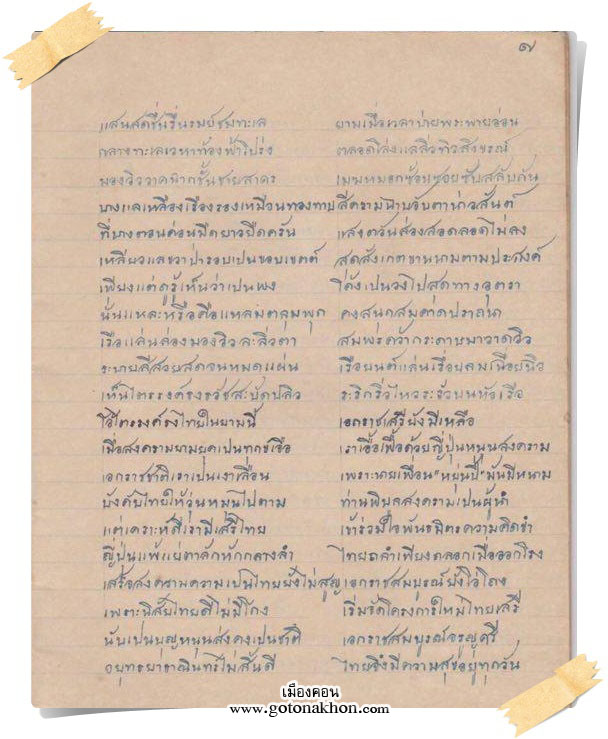 ๗
แสนสดชื่นรื่นรมย์ชมทะเล ยามเมื่อเวลาบ่ายพระพายอ่อน
กลางทะเลเวหาท้องฟ้าโปร่ง ตลอดโล่งแลลิ่วทิวสิงขรณ์
มองวิวาดฉากชั้นชายสาคร เมฆหมอกซ้อนซ่อนซับสลับกัน
บางแลเหลืองเรืองรองเหมือนทองทาบ สีครามฉาบจับตาน่าวสันต์
ที่บางตอนค่อนมืดยาวยืดครัน แสงตวันส่องสอดลอดไม่ลง
เหลียวแลขวาป่ารอบเป็นขอบเขตต์ สุดสังเกตขานนามตามประสงค์
เพียงแต่ดูรู้เห็นว่าเป็นพง โค้งเป็นวงไปสุดทางอุตรา
นั่นแหละหรือคือแหลมตลุมพุก คงสนุกสมคาดปราถนา
เรือแล่นล่องมองวิวละลิ่วตา สมพรคว้ากระดาษมาวาดวิว
ระบายสีสวยสดจนหมดแผ่น เรือยนต์แล่นเรื่อยลมเฉื่อยฉิว
เห็นไตรรงค์ธงธวัชสะบัดปลิว ระริกริ้วไหวระรัวบนหัวเรือ
โอ้ไตรรงค์ธงไทยในยามนี้ เอกราชเสรียังมีเหลือ
เมื่อสงครามยามยุคเป็นทุกข์เจือ เราเอื้อเฟื้อด้วยญี่ปุ่นหนุนสงคราม
เอกราชชาติเราเป็นเงาเลื่อน เพราะนายเพื่อน "หยุ่นปี้" มันมีหนาม
บังคับไทยให้วุ่นหมุนไปตาม ท่านพิบูลสงครามเป็นผู้นำ
แต่เคราะห์ดีเรามีเสรีไทย เข้าร่วมใจพันธมิตรความคิดขำ
ญี่ปุ่นแพ้แย่ตาลักหักกลางลำ ไทยถลำเพียงถลอกเมื่อออกโรง
เสร็จสงครามความเป็นไทยยังไม่สูญ เอกราชสมบูรณ์ยังโอ่โถง
เพราะนิสัยไทยดีไม่มีโกง เริ่มจัดโครงการใหม่ไทยเสรี
นับเป็นบุญหนุนส่งคงเป็นชาติ เอกราชสมบูรณ์จรูญศรี
อยุทธยาธานินทร์ไม่สิ้นดี ไทยจึงมีความสุขอยู่ทุกวัน
เมืองคอน
www.gotonakhon.com